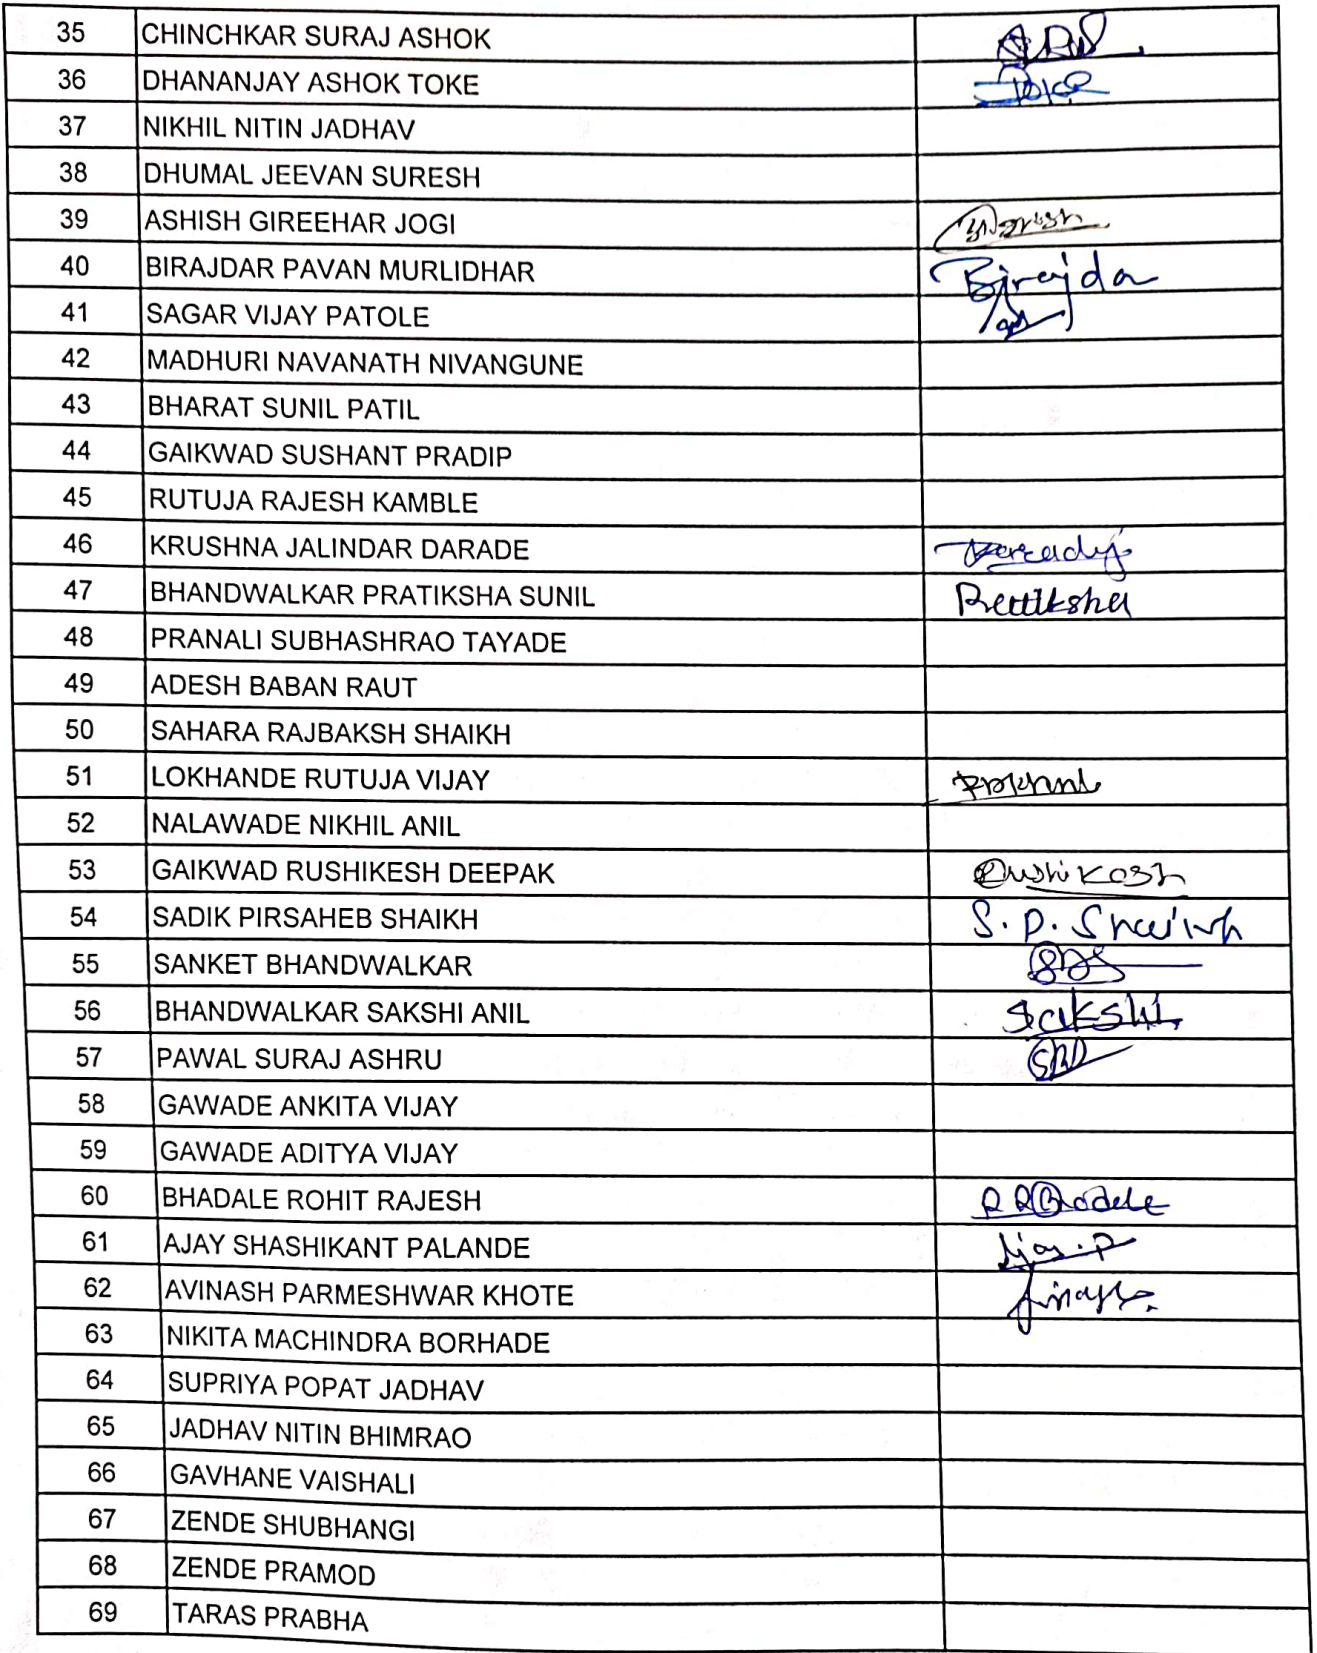 35 CHINCHKAR SURAJ ASHOK
36 DHANANJAY ASHOK TOKE
37 NIKHIL NITIN JADHAV
38 DHUMAL JEEVAN SURESH
39 ASHISH GIREEHAR JOGI
40 BIRAJDAR PAVAN MURLIDHAR Birajda
41 SAGAR VIJAY PATOLE
42 MADHURI NAVANATH NIVANGUNE
43 BHARAT SUNIL PATIL
44 GAIKWAD SUSHANT PRADIP
45 RUTUJA RAJESH KAMBLE
46 KRUSHNA JALINDAR DARADE
47 BHANDWALKAR PRATIKSHA SUNIL Pratiksha
48 PRANALI SUBHASHRAO TAYADE
49 ADESH BABAN RAUT
50 SAHARA RAJBAKSH SHAIKH
51 LOKHANDE RUTUJA VIJAY
52 NALAWADE NIKHIL ANIL
53 GAIKWAD RUSHIKESH DEEPAK Rushikesh
54 SADIK PIRSAHEB SHAIKH S. P. Shaikh
55 SANKET BHANDWALKAR
56 BHANDWALKAR SAKSHI ANIL Sakshi
57 PAWAL SURAJ ASHRU
58 GAWADE ANKITA VIJAY
59 GAWADE ADITYA VIJAY
60 BHADALE ROHIT RAJESH R R Bhadale
61 AJAY SHASHIKANT PALANDE Ajay.P
62 AVINASH PARMESHWAR KHOTE
63 NIKITA MACHINDRA BORHADE
64 SUPRIYA POPAT JADHAV
65 JADHAV NITIN BHIMRAO
66 GAVHANE VAISHALI
67 ZENDE SHUBHANGI
68 ZENDE PRAMOD
69 TARAS PRABHA